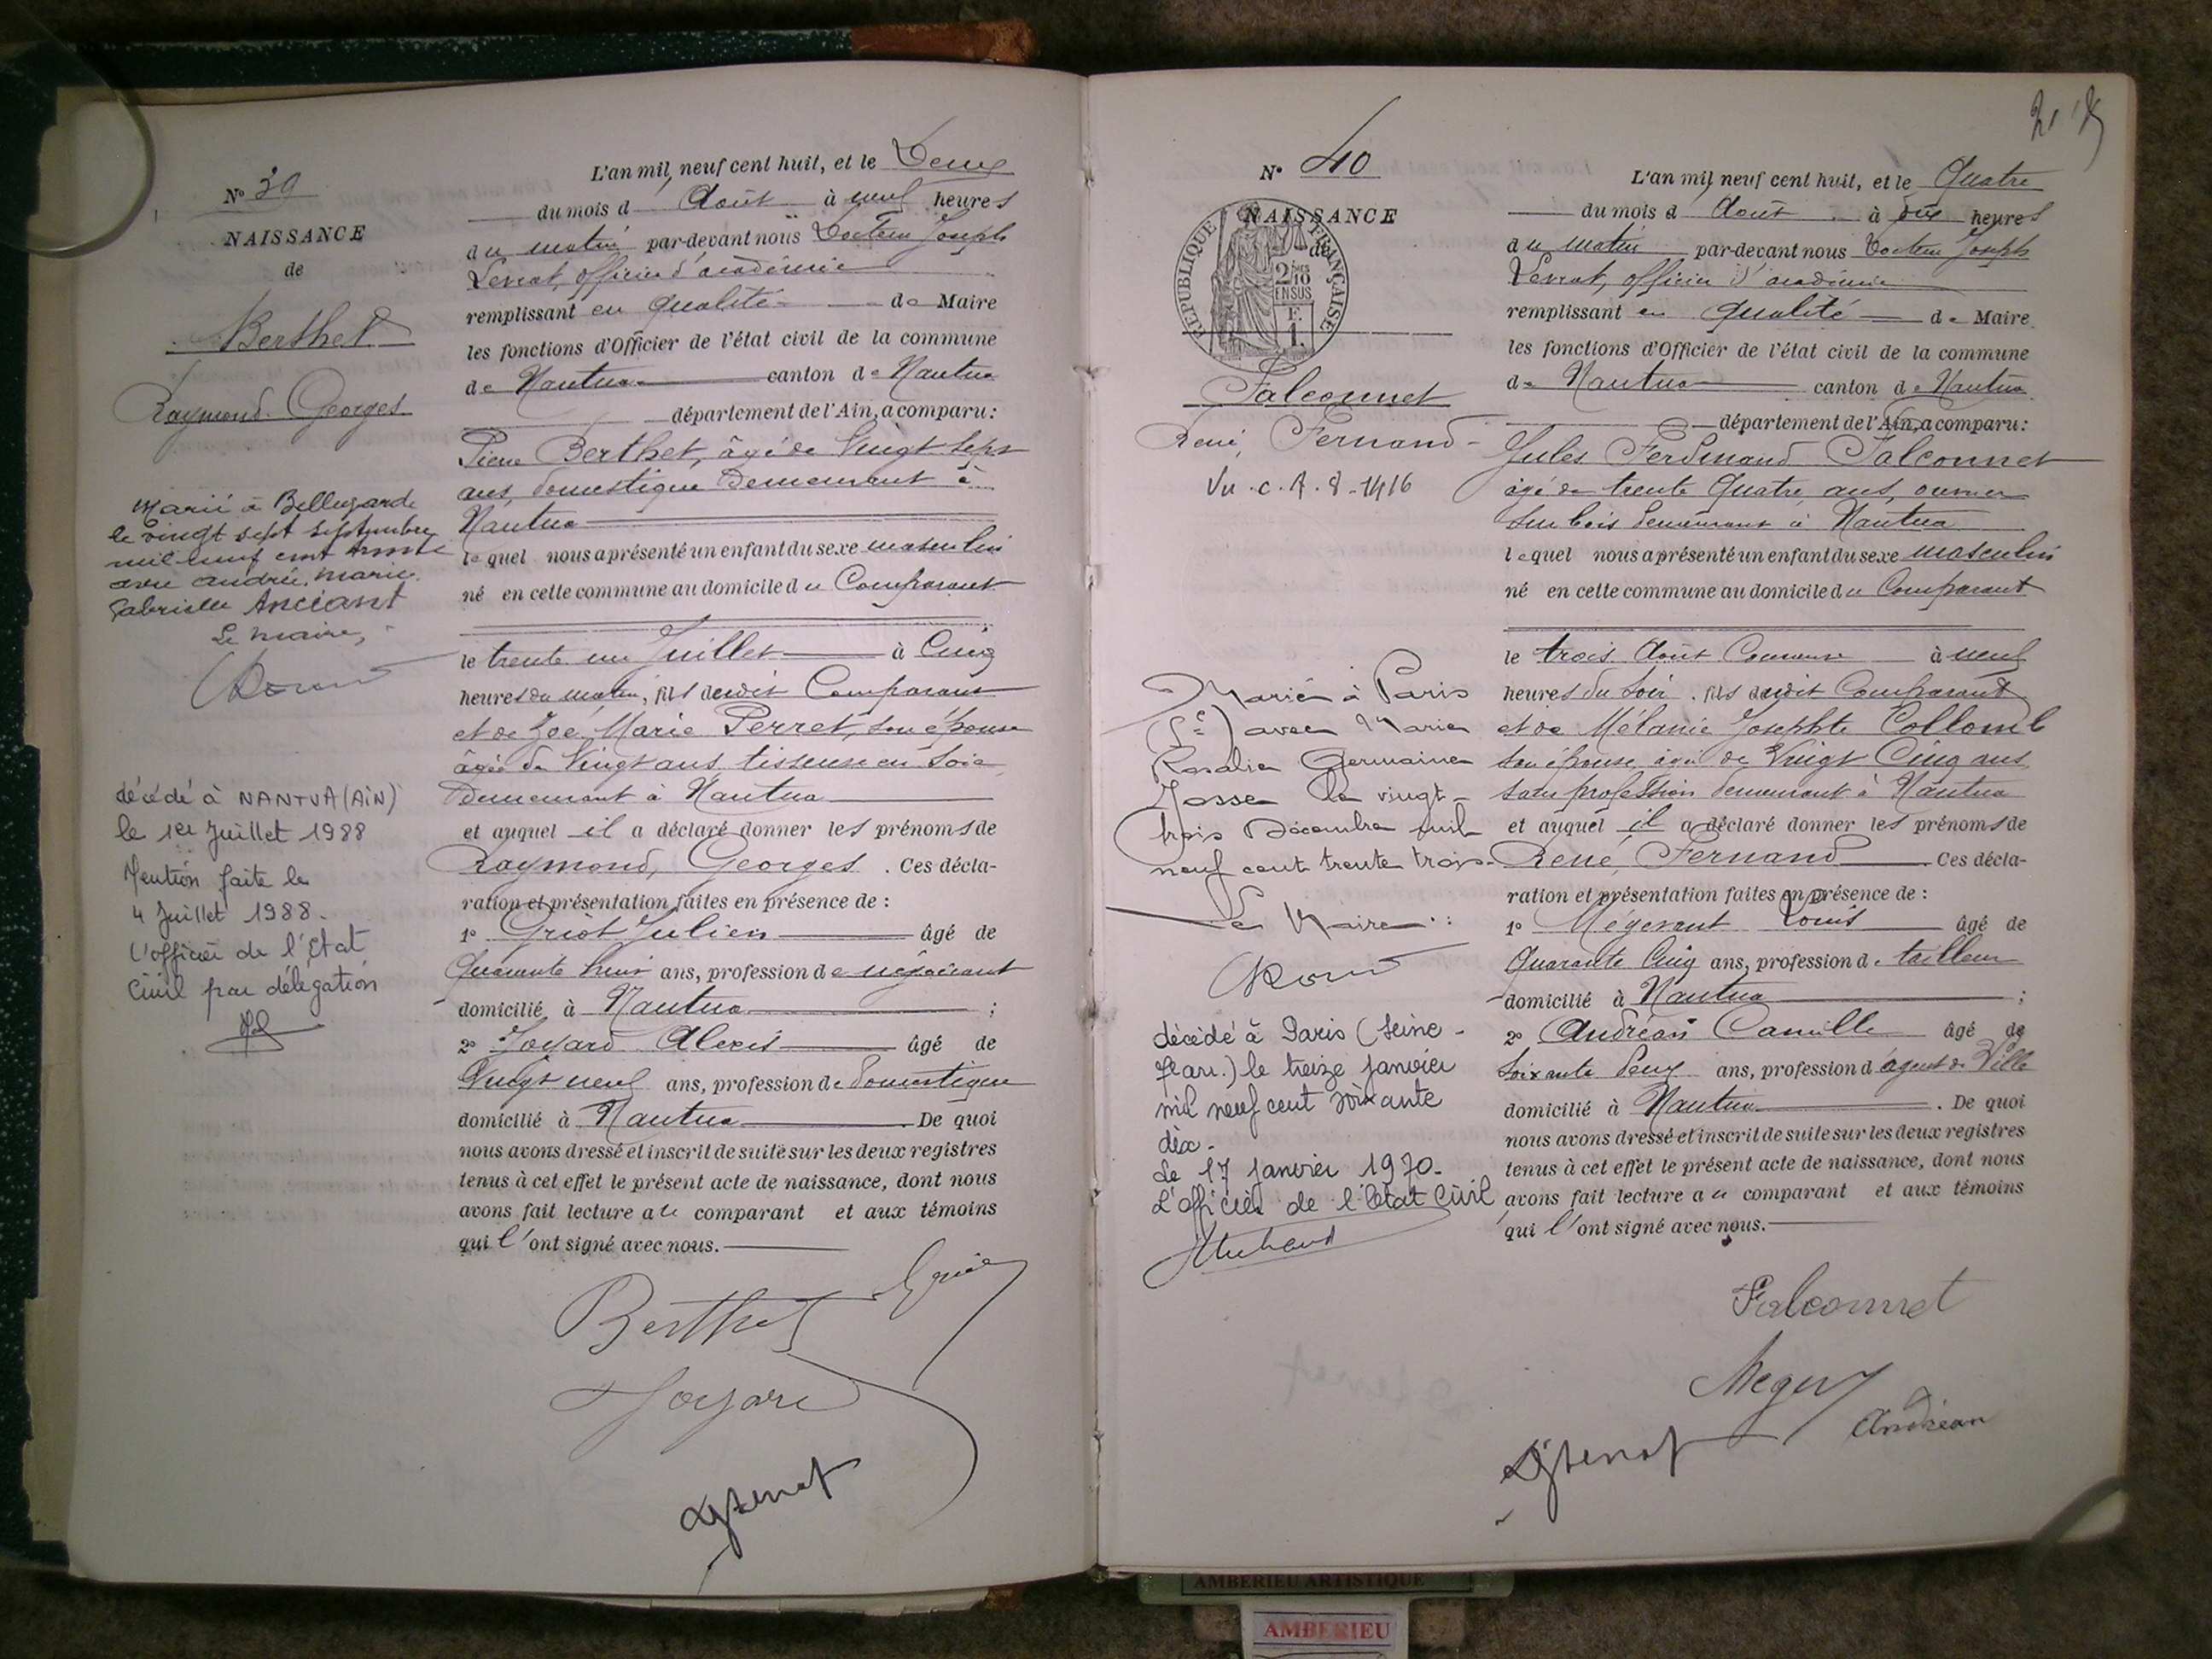 N° 39
NAISSANCE
de
Berthet
Raymond Georges
Marié à Bellegarde
le vingt sept septembre
mil neuf cent trente
avec Andrée, Marie
Gabrielle Anciant
Le Maire,
décédé à NANTUA (AIN)
le 1er Juillet 1988
Mention faite le
4 Juillet 1988.
L'officier de l'Etat
Civil par délégation
L'an mil neuf cent huit, et le Deux
du mois d'Août à neuf heures
du matin par-devant nous Docteur Joseph
officier d'académie
remplissant en qualité de Maire
les fonctions d'Officier de l'état civil de la commune
de Nantua canton de Nantua
département de l'Ain, a comparu:
Pierre Berthet, âgé de Vingt sept
ans, domestique demeurant à
Nantua
lequel nous a présenté un enfant du sexe masculin
né en cette commune au domicile du Comparant
le trente un Juillet à Cinq
heures du matin, fils dudit Comparant
et de Zoé Marie Perret, son épouse
âgée de Vingt ans tisseuse en soie
demeurant à Nantua
et auquel il a déclaré donner les prénoms de
Raymond, Georges. Ces décla-
ration et présentation faites en présence de :
1° Griot Julien âgé de
Quarante huit ans, profession de négociant
domicilié à Nantua ;
2° Joyard Alexis âgé de
Vingt neuf ans, profession de domestique
domicilié à Nantua. De quoi
nous avons dressé et inscrit de suite sur les deux registres
tenus à cet effet le présent acte de naissance, dont nous
avons fait lecture au comparant et aux témoins
qui l'ont signé avec nous.
Berthet
Joyard
N° 40
NAISSANCE
de
REPUBLIQUE FRANÇAISE
2/10 EN SUS
F. 1.
Falconnet
René, Fernand
Marié à Paris
avec Marie
Rosalie Germaine
Josse le vingt-
trois Décembre mil
neuf cent trente trois.
Le Maire :
décédé à Paris (Seine
) le treize janvier
mil neuf cent soixante
dix.
Le 17 janvier 1970.
L'officier de l'Etat Civil
L'an mil neuf cent huit, et le Quatre
du mois d'Août à dix heures
du matin par-devant nous Docteur Joseph
officier d'académie
remplissant en qualité de Maire
les fonctions d'Officier de l'état civil de la commune
de Nantua canton de Nantua
département de l'Ain, a comparu:
Jules Ferdinand Falconnet
âgé de trente Quatre ans, ouvrier
sur bois demeurant à Nantua
lequel nous a présenté un enfant du sexe masculin
né en cette commune au domicile du Comparant
le trois Août Courant à neuf
heures du soir, fils dudit Comparant
et de Mélanie Josephte Collomb
son épouse âgée de Vingt Cinq ans
sans profession demeurant à Nantua
et auquel il a déclaré donner les prénoms de
René, Fernand Ces décla-
ration et présentation faites en présence de :
1° Mégevant Louis âgé de
Quarante Cinq ans, profession de tailleur
domicilié à Nantua ;
2° Andréan Camille âgé de
Soixante Deux ans, profession d'agent de Ville
domicilié à Nantua. De quoi
nous avons dressé et inscrit de suite sur les deux registres
tenus à cet effet le présent acte de naissance, dont nous
avons fait lecture au comparant et aux témoins
qui l'ont signé avec nous.
Falconnet
Andréan
AMBERIEU ARTISTIQUE
AMBERIEU